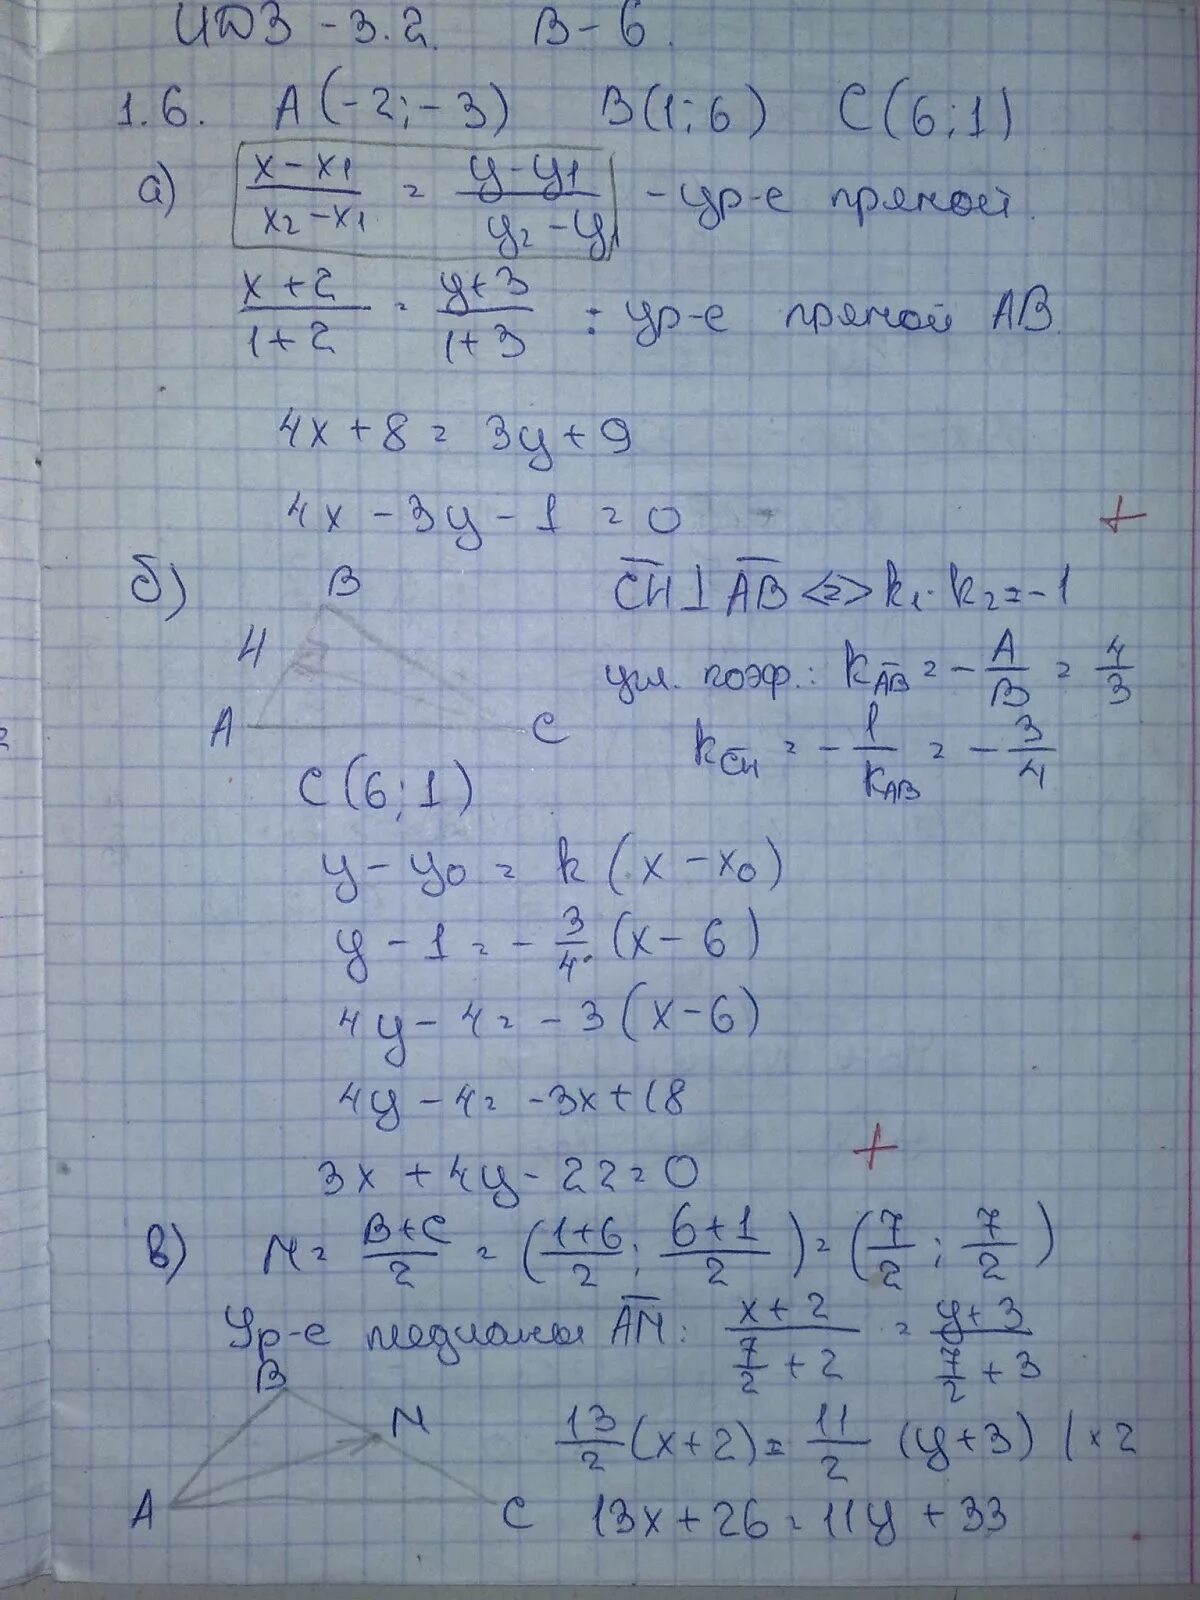 ИДЗ - 3.2. В-6.
1.6. A(-2;-3) B(1;6) C(6;1)
а) (x-x₁)/(x₂-x₁) = (y-y₁)/(y₂-y₁) - ур-е прямой.
(x+2)/(1+2) = (y+3)/(1+3) : ур-е прямой AB.
4x+8=3y+9
4x-3y-1=0
+
б) B
H
A
C
CH⊥AB <=> k₁·k₂=-1
угл. коэф.: k_AB = -A/B = 4/3
k_CH = -1/k_AB = -3/4
C(6;1)
y-y₀=k(x-x₀)
y-1=-3/4·(x-6)
4y-4=-3(x-6)
4y-4=-3x+18
3x+4y-22=0
+
в) N = (B+C)/2 = ((1+6)/2; (6+1)/2) = (7/2; 7/2)
Ур-е медианы AN: (x+2)/(7/2+2) = (y+3)/(7/2+3)
B
N
A
C
13/2(x+2)=11/2(y+3) |×2
13x+26=11y+33